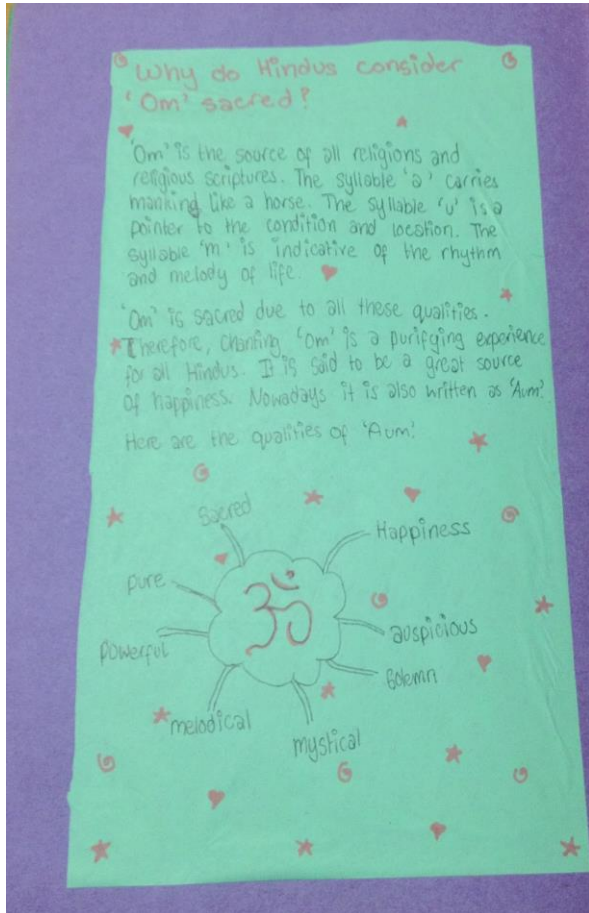 Why do Hindus consider
'Om' sacred?
'Om' is the source of all religions and
religious scriptures. The syllable 'a' carries
manking like a horse. The syllable 'u' is a
pointer to the condition and location. The
syllable 'm' is indicative of the rhythm
and melody of life.
'Om' is sacred due to all these qualities.
Therefore, chanting 'Om' is a purifying experience
for all Hindus. It is said to be a great source
of happiness. Nowadays it is also written as 'Aum'.
Here are the qualities of 'Aum'.
Sacred
Happiness
pure
ॐ
auspicious
powerful
Solemn
melodical
mystical